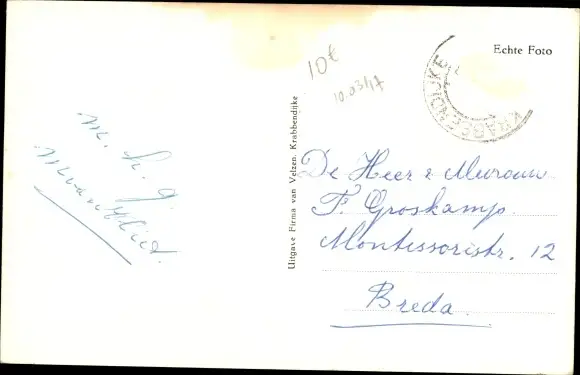 Echte Foto
10€
10.03/17
KRABBENDIJKE
M. h. g.
M van Vliet.
Uitgave Firma van Velzen, Krabbendijke
De Heer & Mevrouw
F. Groskamp.
Montessoristr. 12
Breda.